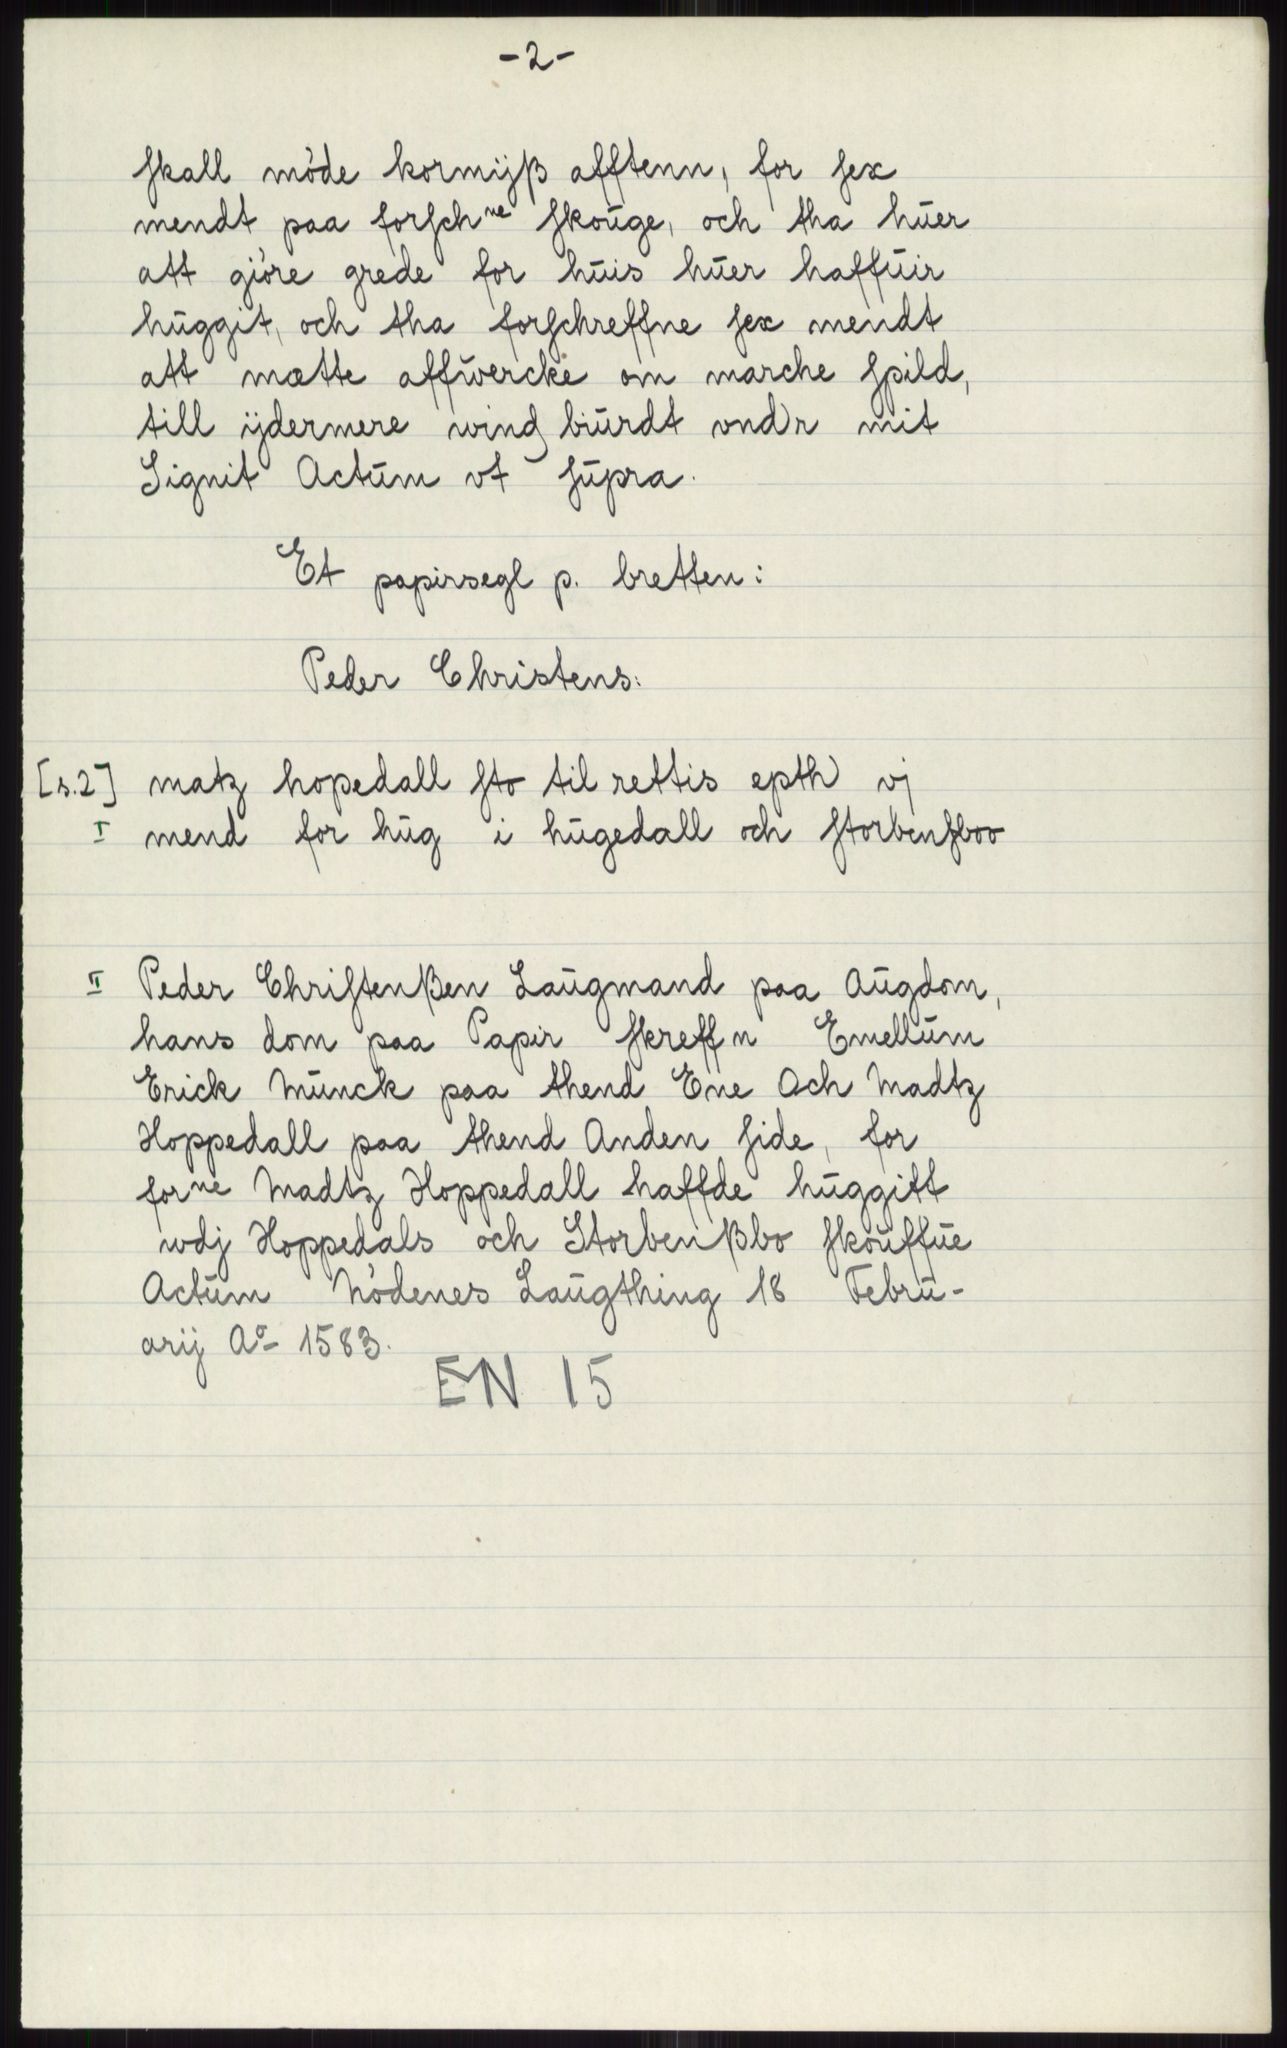 -2-
skall møde kormijß afftenn, for sex
mendt paa forschne skoŭge, och tha hŭer
att giøre grede for hŭis hŭer haffŭir
hŭggit, och tha forschreffne sex mendt
att mætte affwercke om marche spild,
till ijdermere windbiŭrdt vndr mit
Signit Actŭm vt sŭpra.
Et papirsegl p. bretten:
Peder Christens:
[s.2] matz hopedall sto til rettis epth vj
I mend for hŭg i hŭgedall och storbensboo
II Peder Christenßen Laŭgmand paa Aŭgdom,
hans dom paa Papir skreffn Emellŭm
Erick Mŭnck paa thend Ene Och Madtz
Hoppedall paa thend Anden side, for
forne Madtz Hoppedall haffde hŭggitt
wdj Hoppedals och Storbenßbo skoŭffŭe
Actŭm Nødenes Laŭgthing 18 Febrŭ-
arij Ao 1583.
EN 15